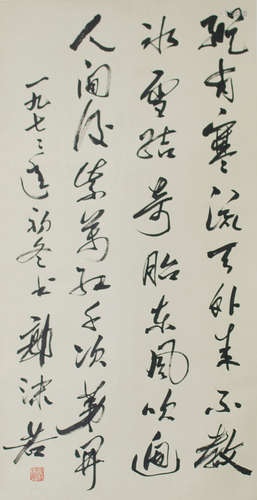 纵有寒流天外来不教
冰雪结奇胎东风吹遍
人间后紫万红千次第开
一九七三年初冬书 郭沫若